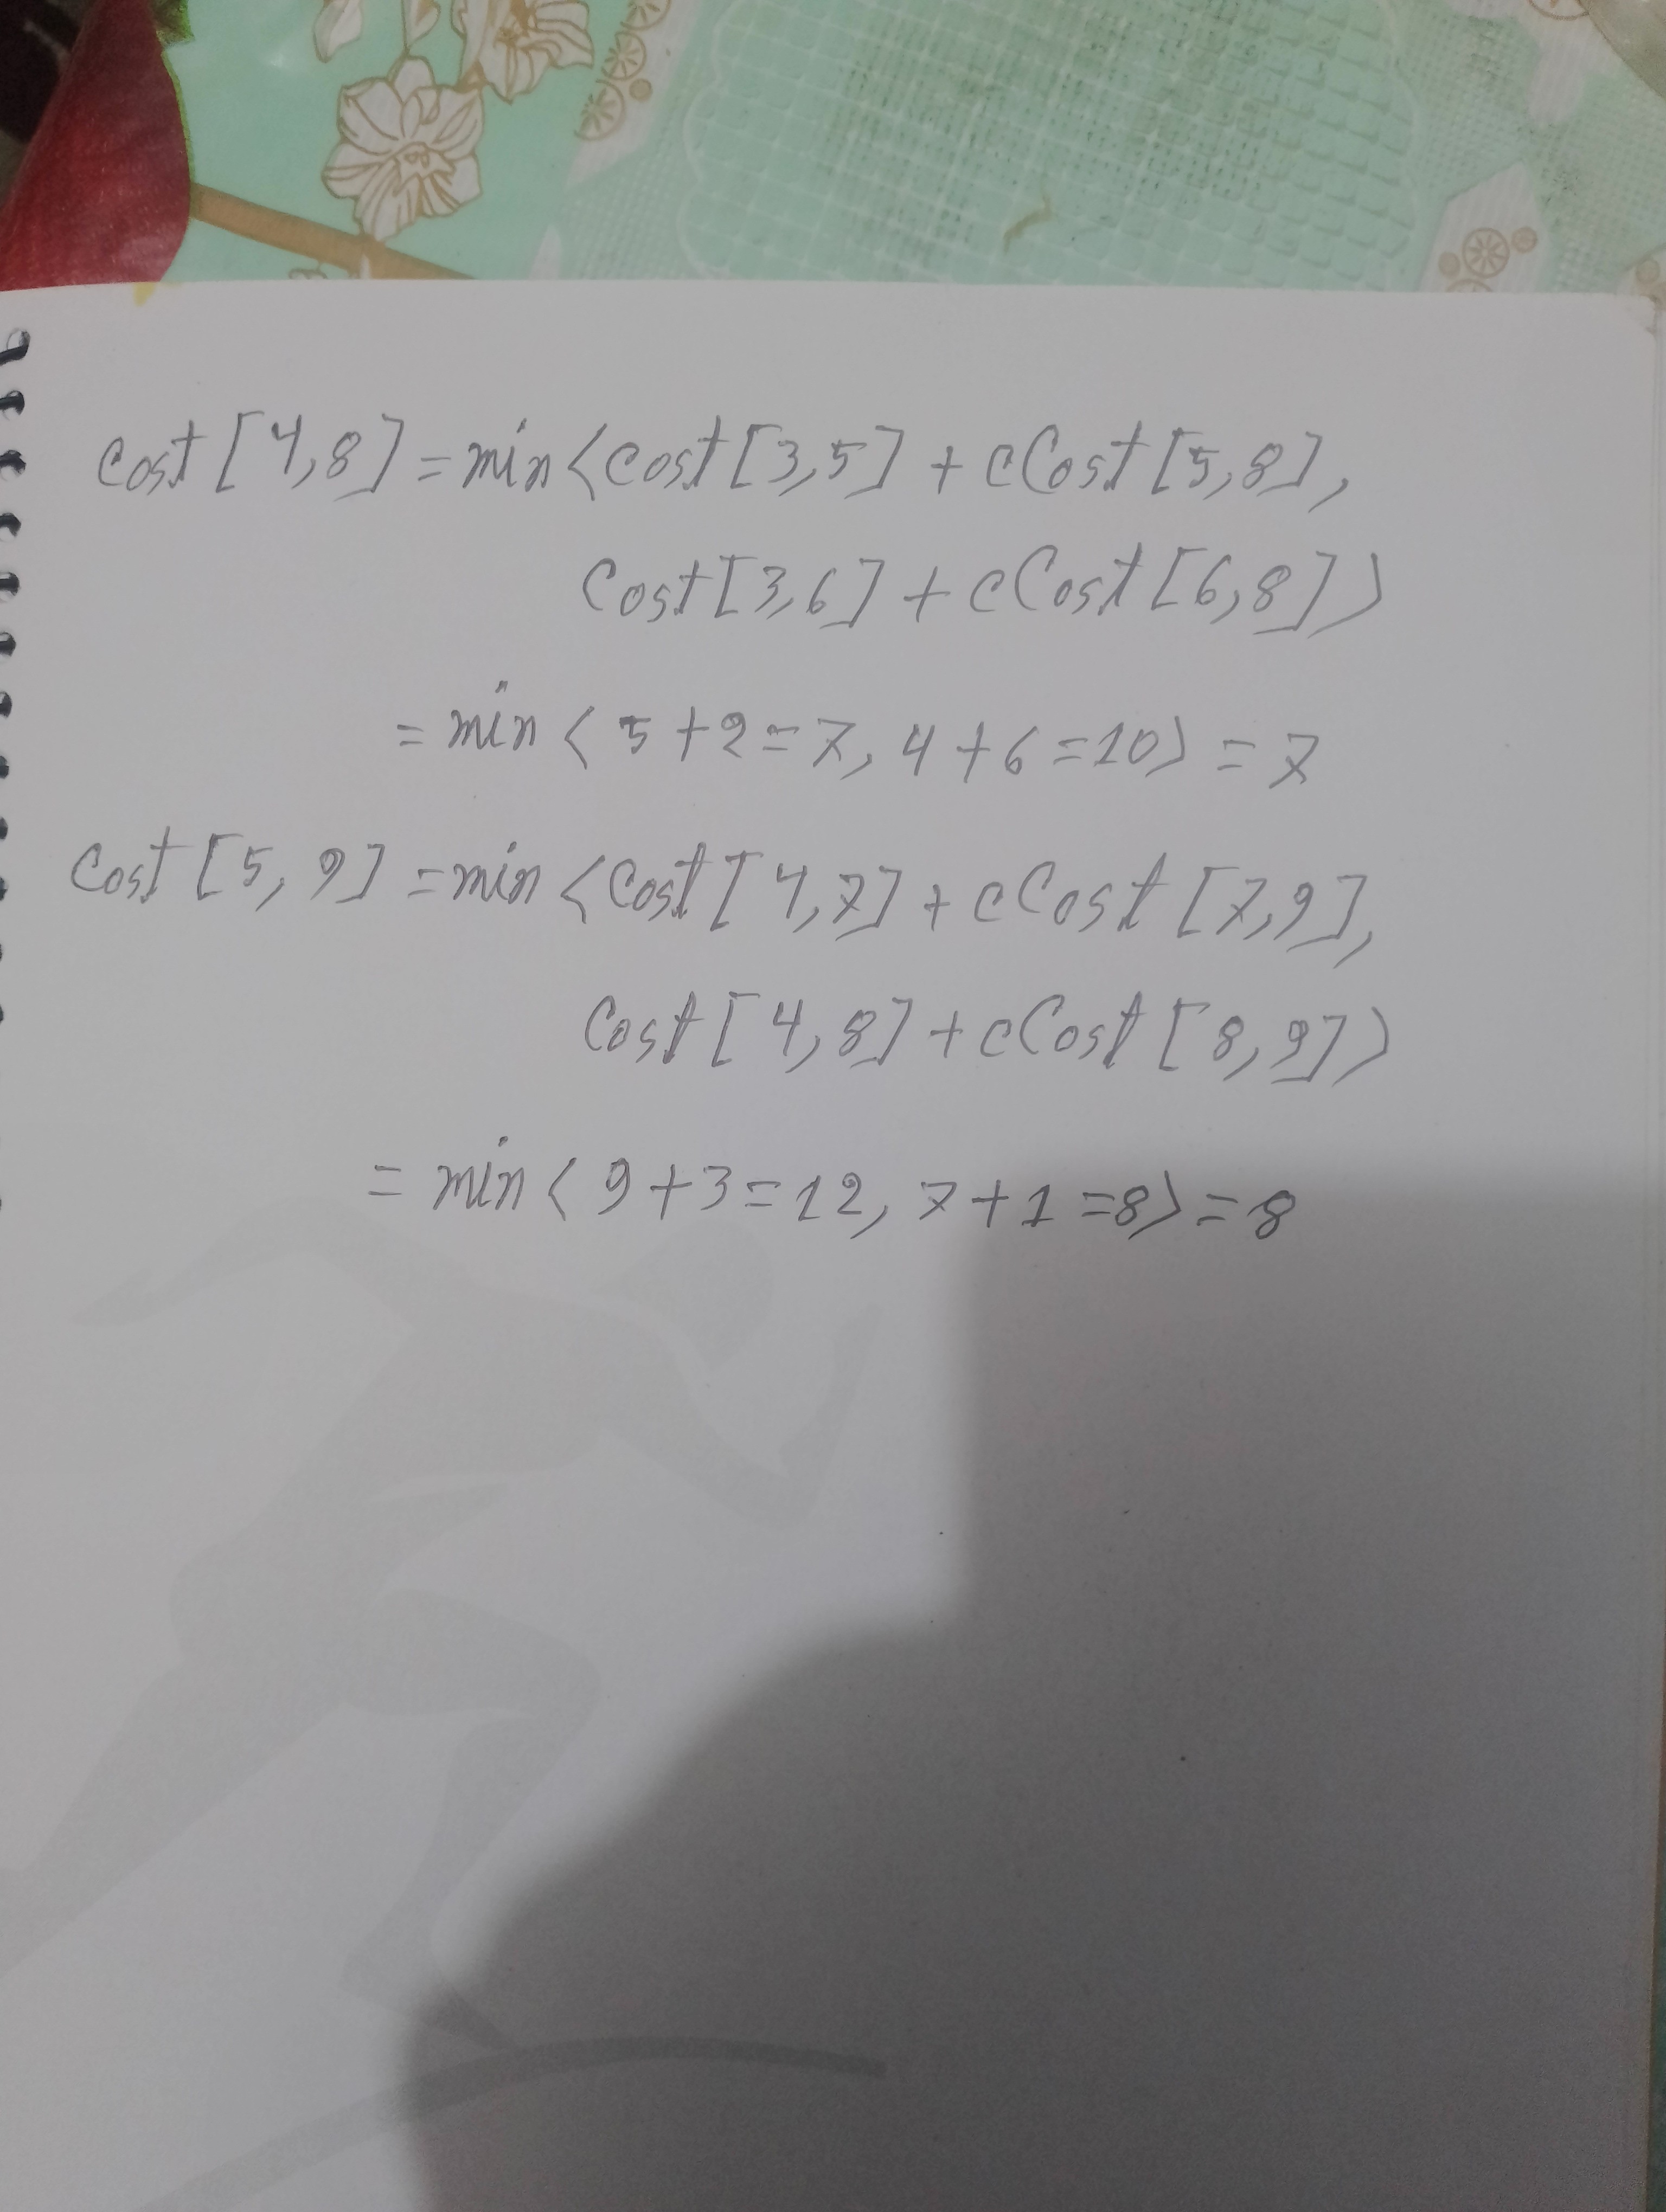 cost [4,8] = min<cost[3,5] + cCost[5,8],
Cost[3,6] + cCost[6,8]>
= min < 5+2=7, 4+6=10> = 7
Cost [5, 9] = min <Cost[4,7] + cCost [7,9],
Cost[4,8] + cCost [8,9]>
= min < 9+3=12, 7+1=8> = 8